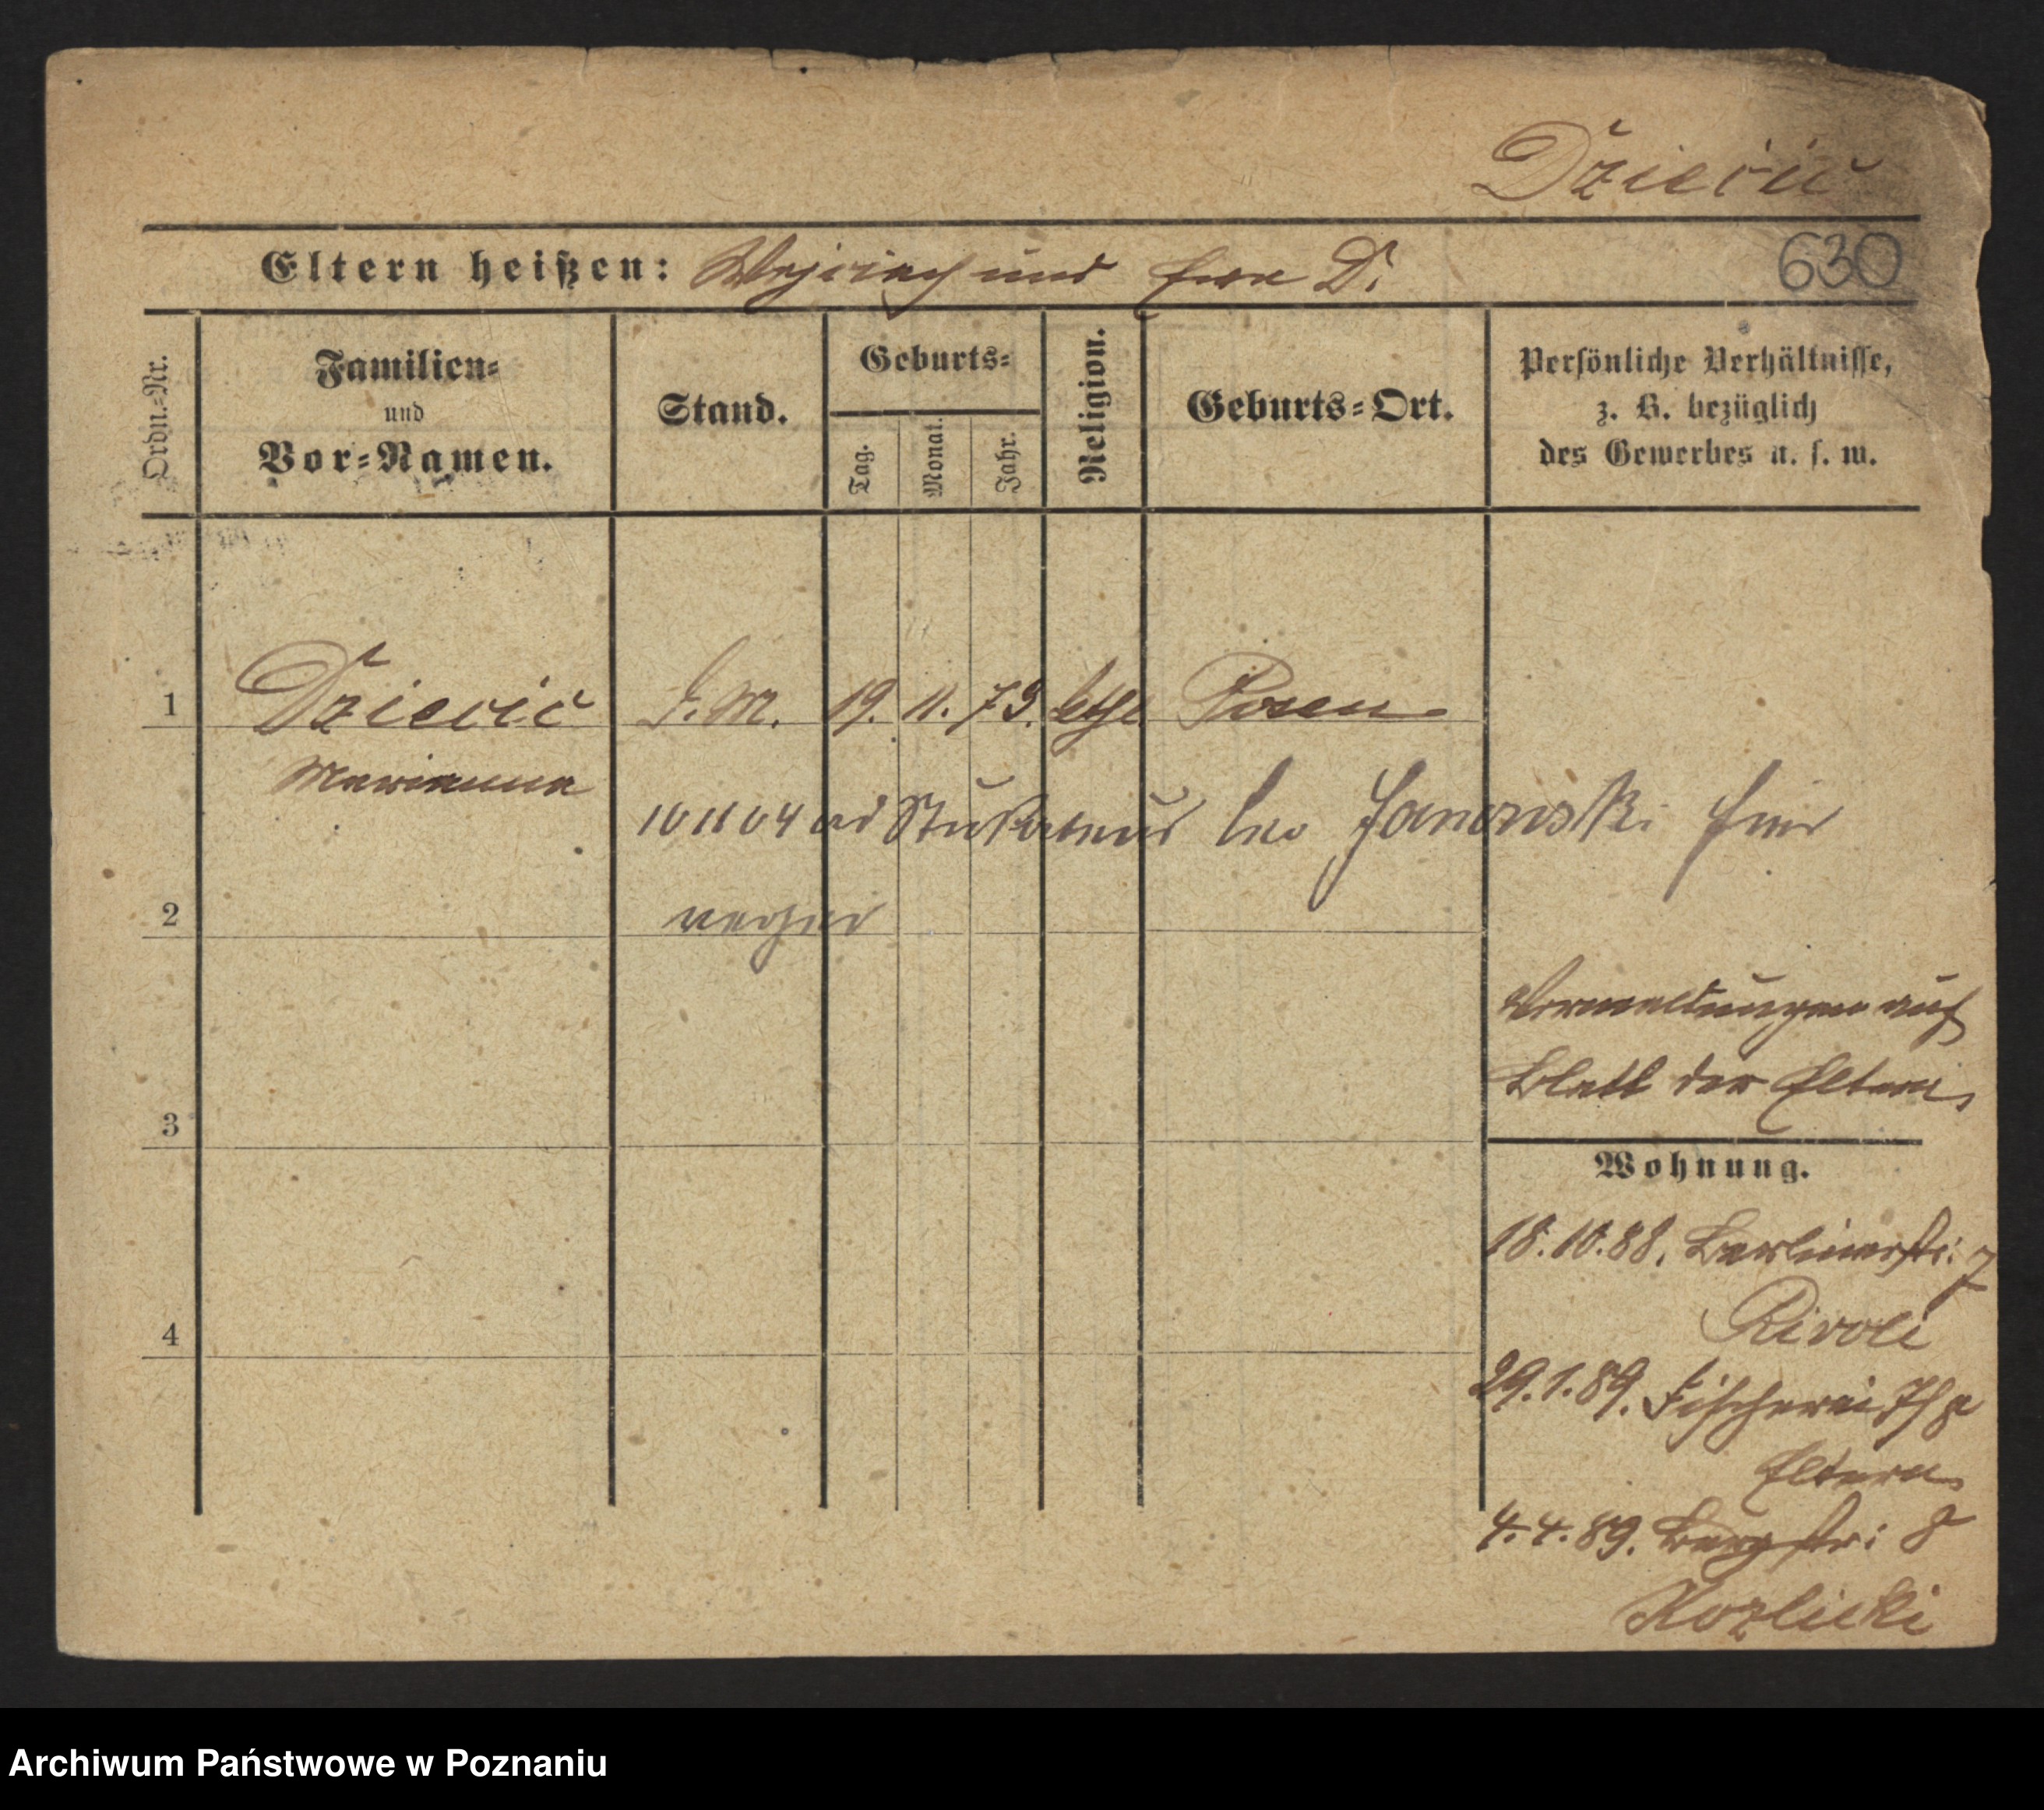 Dziecic
Eltern heißen: Wojciech und Eva D.
630
Ordn.-Nr.
Familien-
und
Vor-Namen.
Stand.
Geburts-
Tag.
Monat.
Jahr.
Religion.
Geburts-Ort.
Persönliche Verhältnisse,
z. B. bezüglich
des Gewerbes u. s. w.
1
Dziecic
Marianna
D. M.
19.
11.
73.
kath.
Posen
10 11 04 Leo Janowski
2
3
4
Vermeldungen auf
Blatt der Eltern
Wohnung.
18.10.88. Berlinerstr. 7
Rivoli
29.1.89. Fischerei
Eltern
4.4.89. Bergstr. 8
Kozlicki
Archiwum Państwowe w Poznaniu